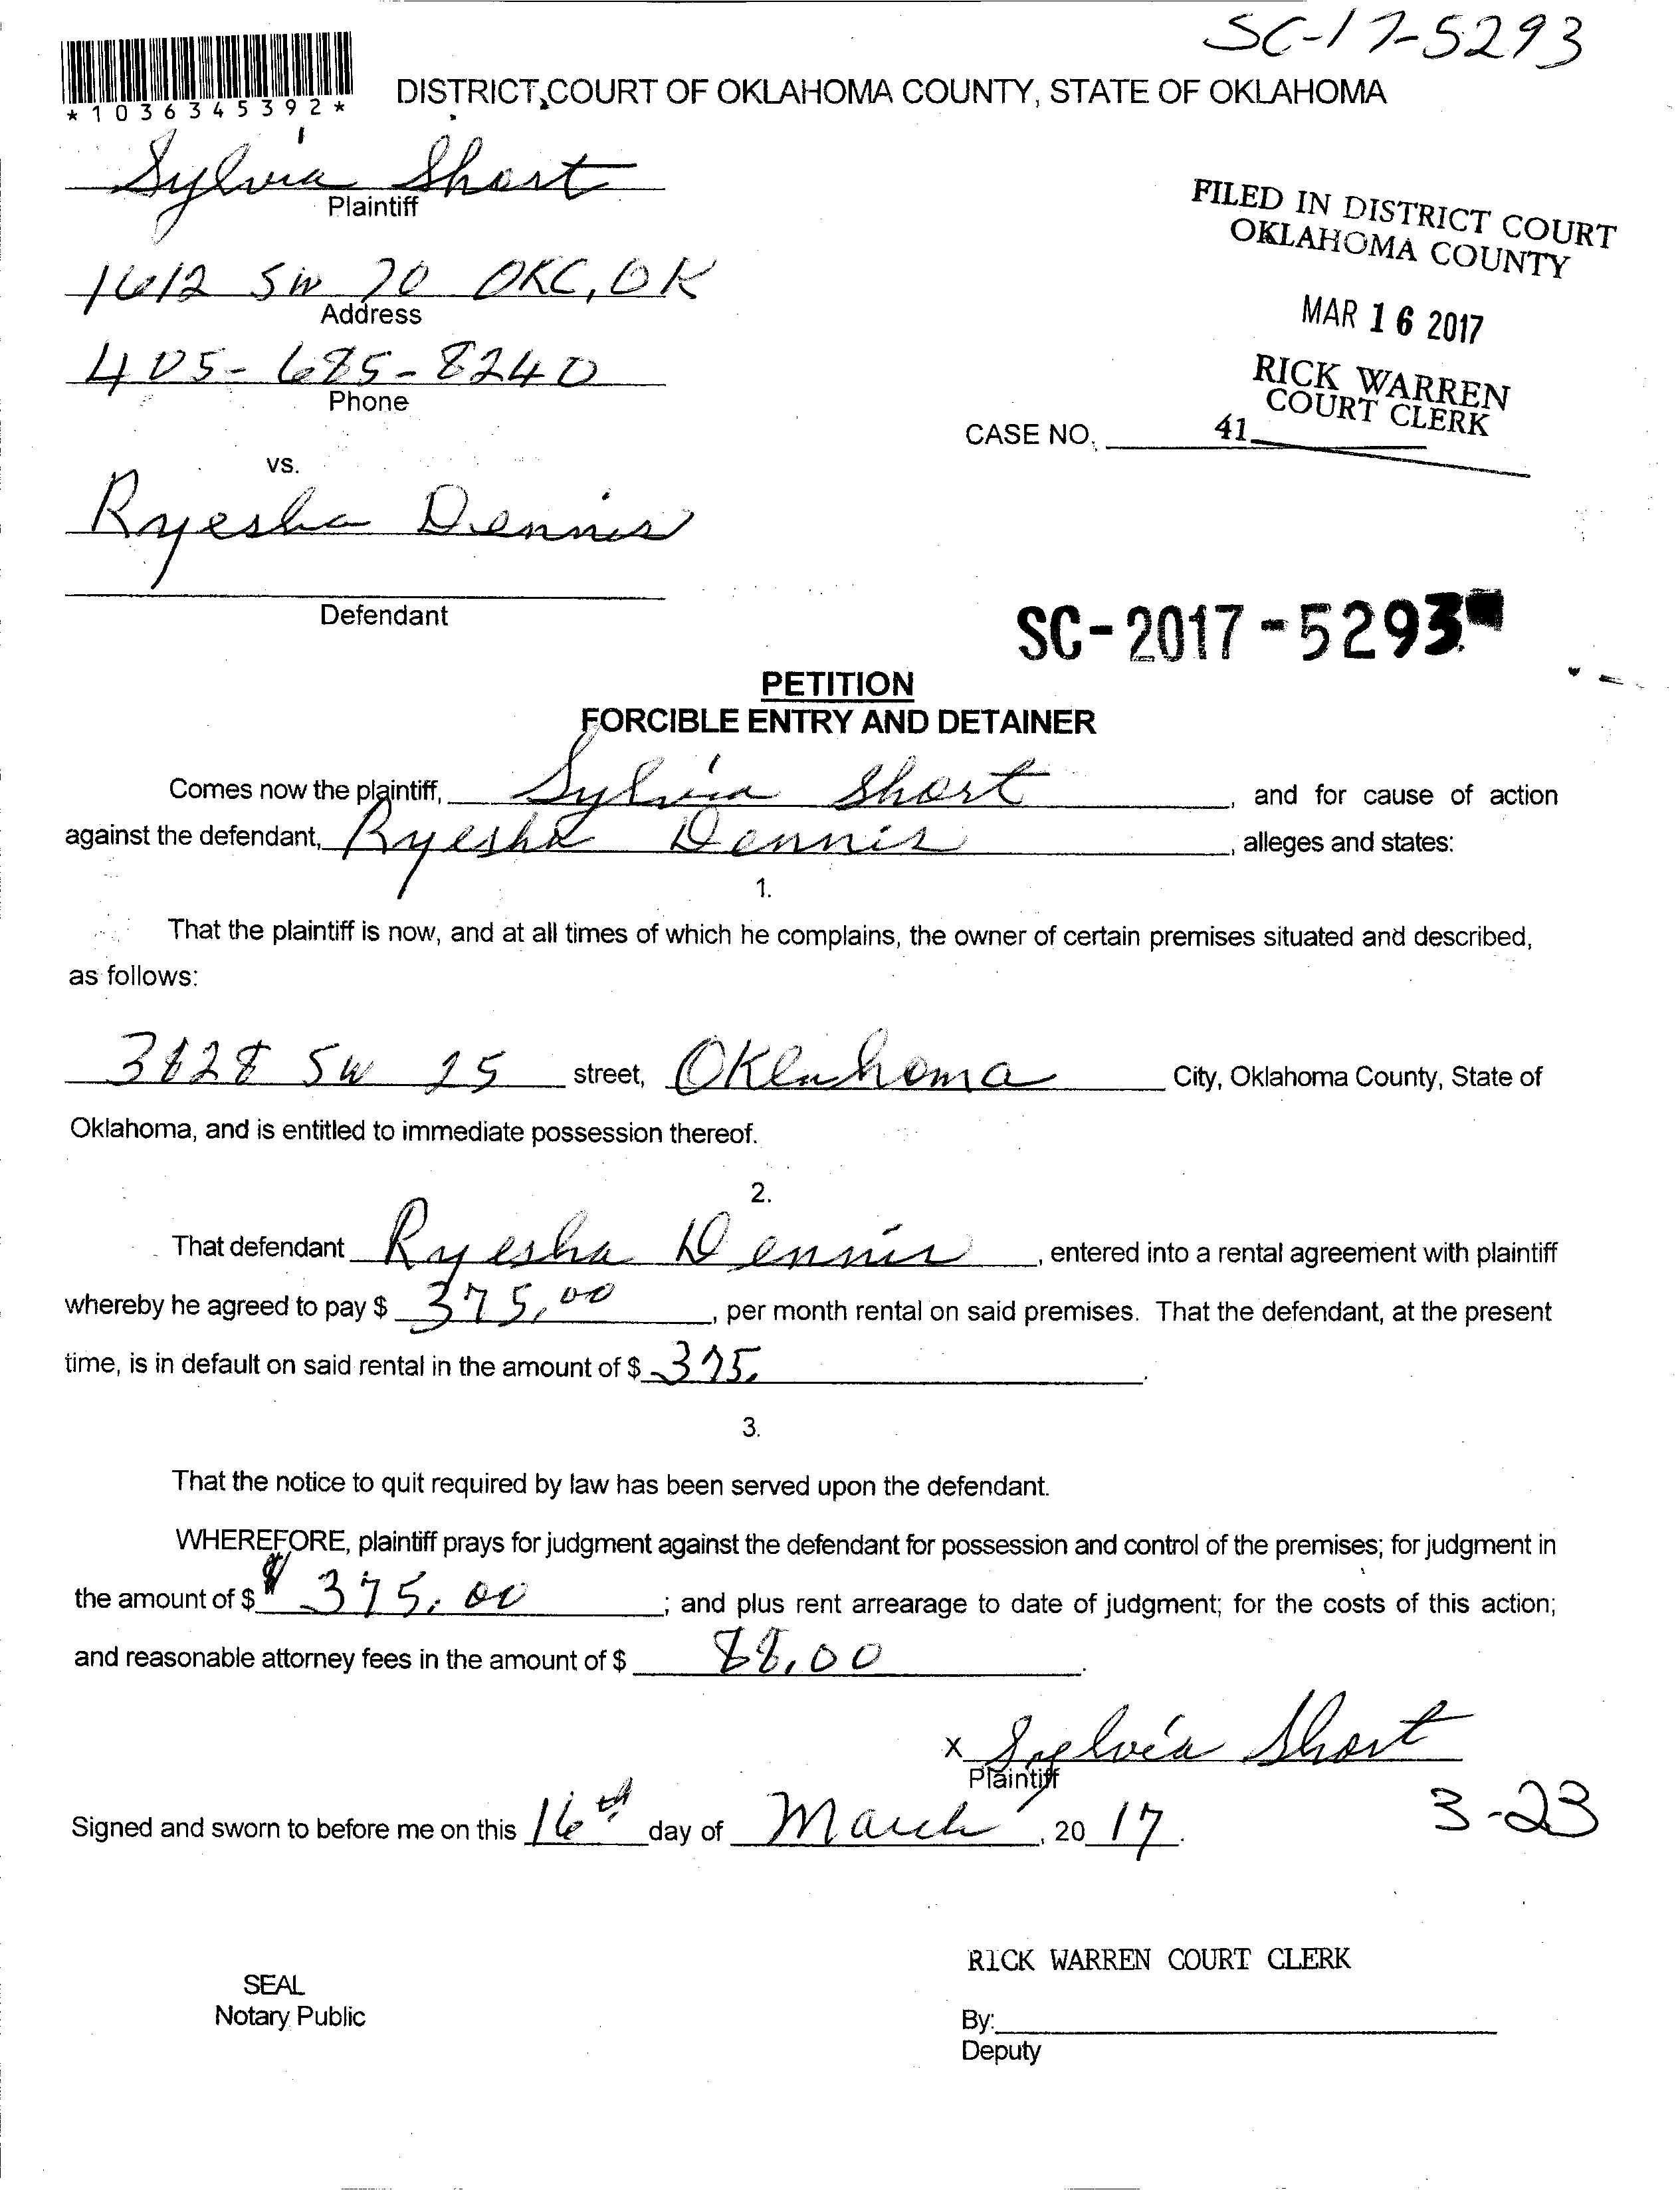 SC-17-5293
*1036345392*
DISTRICT COURT OF OKLAHOMA COUNTY, STATE OF OKLAHOMA
Sylvia Short
Plaintiff
FILED IN DISTRICT COURT
OKLAHOMA COUNTY
1612 SW 70 OKC, OK
Address
MAR 16 2017
405-685-8240
Phone
RICK WARREN
COURT CLERK
CASE NO. 41
vs.
Ryesha Dennis
Defendant
SC-2017-5293
PETITION
FORCIBLE ENTRY AND DETAINER
Comes now the plaintiff, Sylvia Short, and for cause of action
against the defendant, Ryesha Dennis, alleges and states:
1.
That the plaintiff is now, and at all times of which he complains, the owner of certain premises situated and described,
as follows:
SW street, Oklahoma City, Oklahoma County, State of
Oklahoma, and is entitled to immediate possession thereof.
2.
That defendant Ryesha Dennis, entered into a rental agreement with plaintiff
whereby he agreed to pay $ 375.00, per month rental on said premises. That the defendant, at the present
time, is in default on said rental in the amount of $ 375.
3.
That the notice to quit required by law has been served upon the defendant.
WHEREFORE, plaintiff prays for judgment against the defendant for possession and control of the premises; for judgment in
the amount of $ $ 375.00; and plus rent arrearage to date of judgment; for the costs of this action;
and reasonable attorney fees in the amount of $ 88.00.
x Sylvia Short
Plaintiff
3-23
Signed and sworn to before me on this 16th day of March, 20 17.
RICK WARREN COURT CLERK
SEAL
Notary Public
By:
Deputy